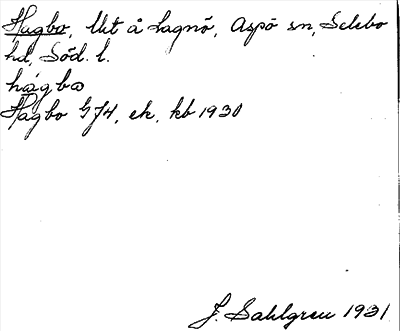 Hagbo, lht å Lagnö, Aspö sn, Selebo
hd, Söd. l.
hágbω
Hagbo G74, ek, kb 1930
J. Sahlgren 1931